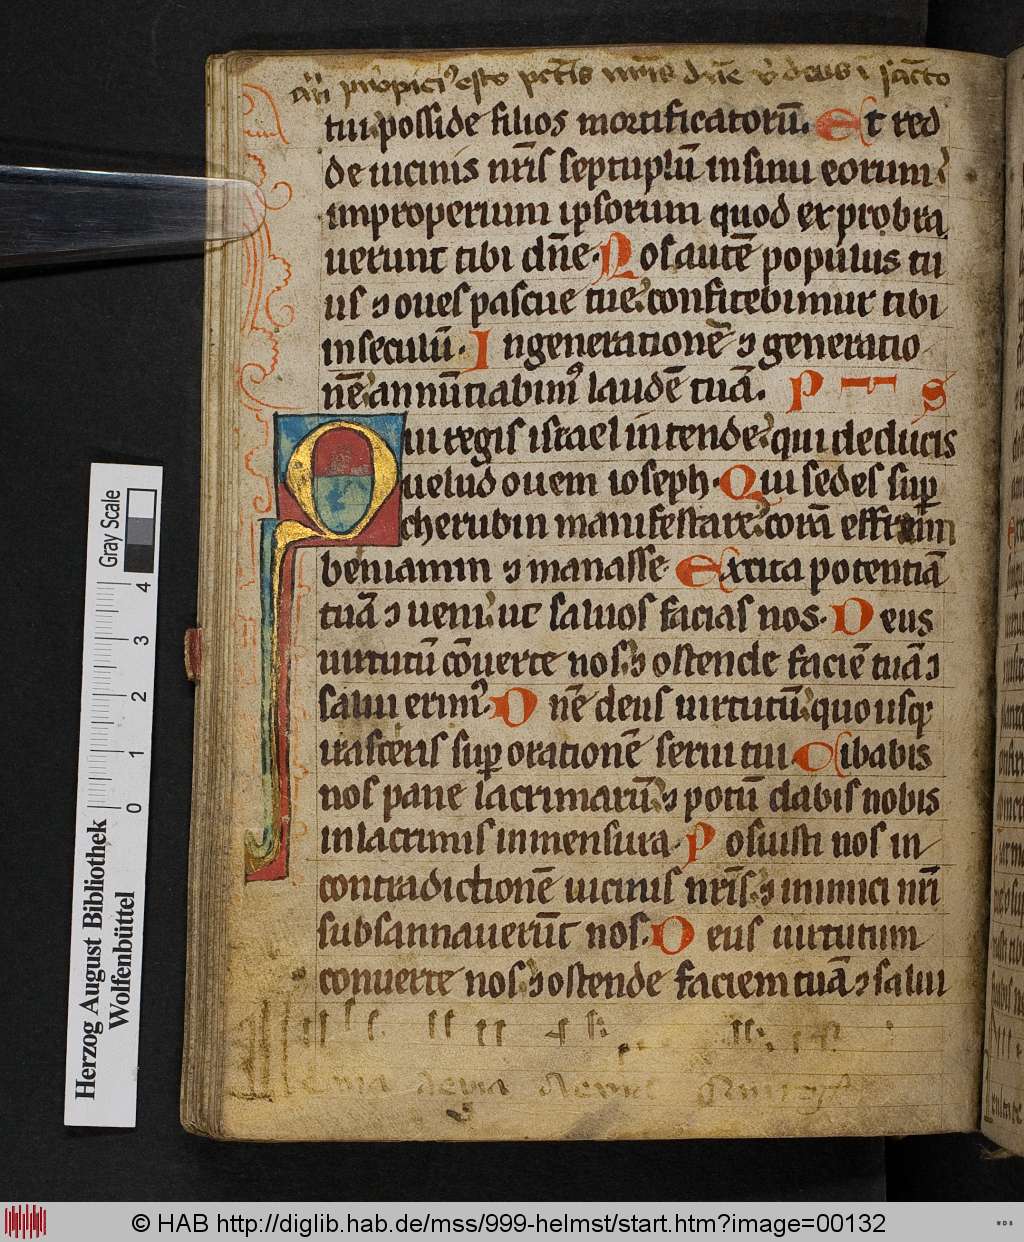 an̄ propici⁹ esto pctīs nr̄is dn̄e v̄ deus ī sācto
tui posside filios mortificatorū. Et red
de uicinis nr̄is septuplū in sinu eorum
improperium ipsorum quod exprobra
uerunt tibi dn̄e. Nos autē populus tu
us ⁊ oues pascue tue confitebimur tibi
in seculū. In generationē ⁊ generatio
nē annūtiabim⁹ laudē tuā. Ps
Qui regis israel intende qui deducis
uelud ouem ioseph. Qui sedes suꝑ
cherubin manifestare corā effraim
beniamin ⁊ manasse. Excita potentiā
tuā ⁊ ueni ut saluos facias nos. Deus
uirtutū cōuerte nos ⁊ ostende faciē tuā ⁊
salui erim⁹. Dn̄e deus uirtutū quo usqꝫ
irasceris suꝑ orationē serui tui Cibabis
nos pane lacrimarū ⁊ potū dabis nobis
in lacrimis in mensura. Posuisti nos in
contradictionē uicinis nr̄is ⁊ inimici nr̄i
subsannauerūt nos. Deus uirtutum
conuerte nos ⁊ ostende faciem tuā ⁊ salui
Gray Scale
0 1 2 3 4
Herzog August Bibliothek
Wolfenbüttel
© HAB http://diglib.hab.de/mss/999-helmst/start.htm?image=00132